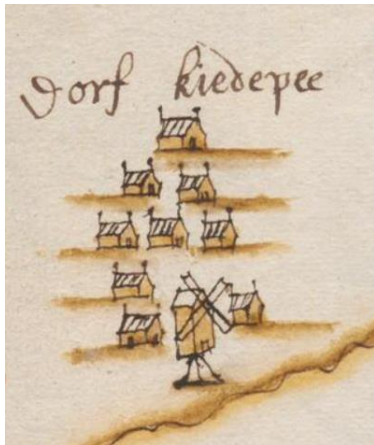 Dorf kiedepee